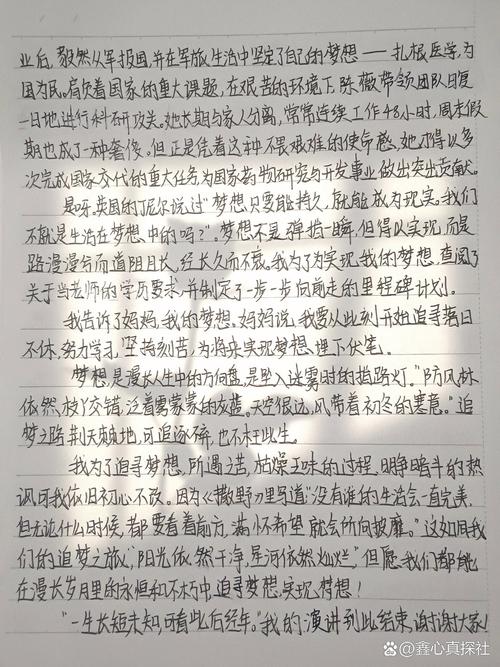 业后,毅然从军报国,并在军旅生活中坚定了自己的梦想——扎根医学,为
国为民。肩负着国家的重大课题,在艰苦的环境下,陈薇带领团队日复
一日地进行科研攻关。她长期与家人分离,常常连续工作48小时,周末假
期也成了一种奢侈。但正是凭着这种不畏艰难的使命感,她才得以多
次完成国家交代的重大任务,为国家药物研究与开发事业做出突出贡献。
是呀。英国的丁尼尔说过"梦想只要能持久,就能成为现实。我们
不就是生活在梦想中的吗?"。梦想不是弹指一瞬,但得以实现,而是
路漫漫兮而道阻且长,经长久而不衰。我为了为实现我的梦想,查阅了
关于当老师的学历要求,并制定了一步一步向前走的里程碑计划。
我告诉了妈妈,我的梦想。妈妈说,我要从此刻开始追寻落日
不休,努力学习,坚持刻苦,为将来实现梦想,埋下伏笔。
梦想,是漫长人生中的方向盘,是坠入迷雾时的指路灯。"防风林
依然,枝丫交错,泛着雾蒙蒙的灰蓝。天空很远,风带着初冬的寒意。"追
梦之路,荆天棘地,可追逐碎,也不枉此生。
我为了追寻梦想,所遇之苦,枯燥乏味的过程,明挣暗斗的热
讽,可我依旧初心不改。因为《撒野》里写道"没有谁的生活会一直完美,
但无论什么时候,都要看着前方,满怀希望就会所向披靡。"这如同我
们的追梦之旅,"阳光依然干净,星河依然灿烂。"但愿我们都能
在漫长岁月里的永恒和不朽中,追寻梦想,实现梦想!
"一生长短未知,可看此后经年。"我的演讲到此结束,谢谢大家!
@鑫心真探社